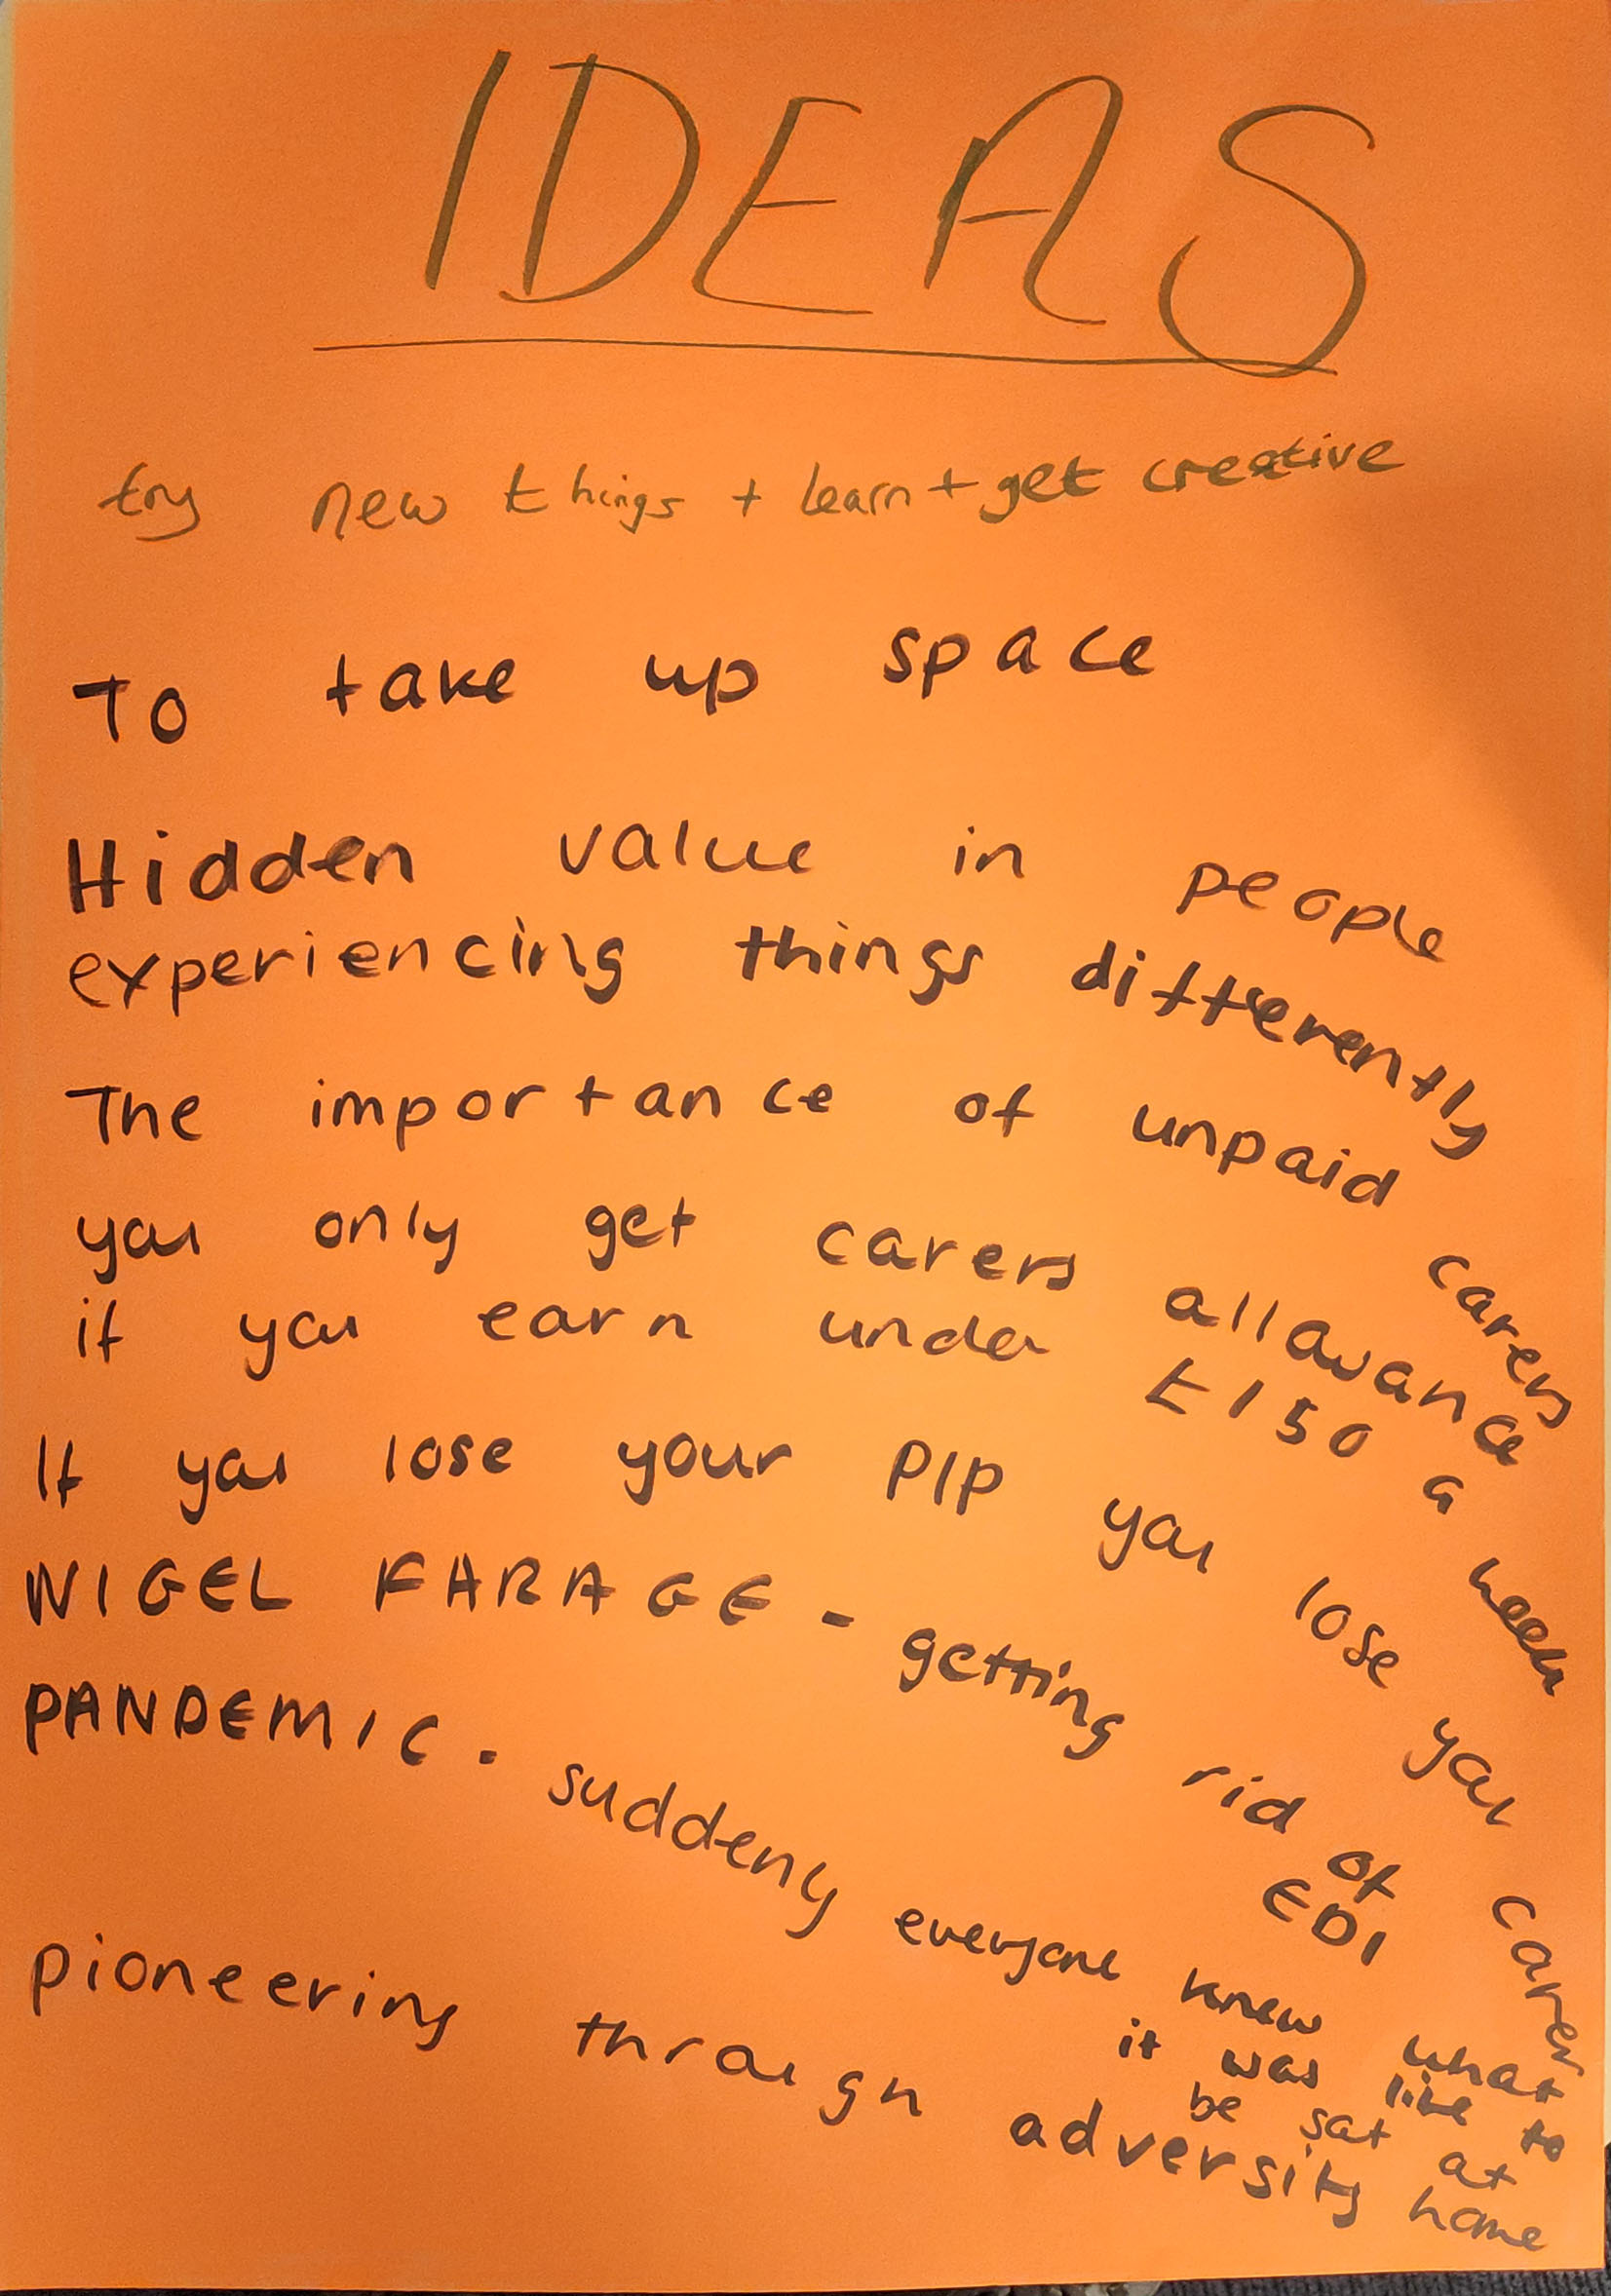 IDEAS
try new things + learn + get creative
To take up space
Hidden value in people
experiencing things differently
The importance of unpaid carers
you only get carers allowance
if you earn under £150 a week
If you lose your PIP you lose your carer
NIGEL FARAGE - getting rid of
EDI
PANDEMIC - suddenly everyone knew what
it was like to
be sat at
home
pioneering through adversity